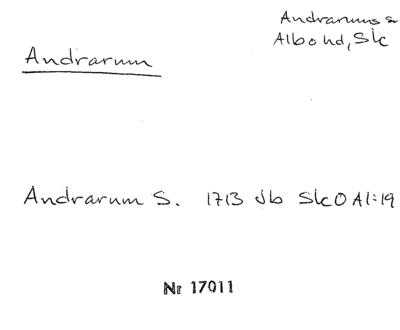 Andrarums s
Albo hd, Skc
Andrarum
Andrarum S. 1713 Jb SkO AI:19
Nr 17011